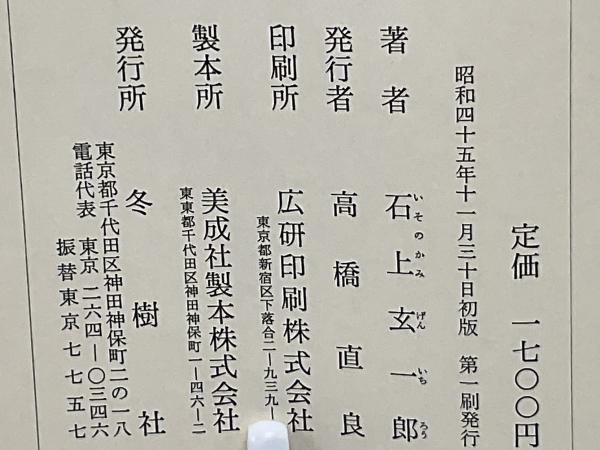 定価 一七〇〇円
昭和四十五年十一月三十日初版 第一刷発行
著者 石上玄一郎
いそのかみ げんいちろう
発行者 高橋直良
印刷所 広研印刷株式会社
東京都新宿区下落合二ー九三九ー
製本所 美成社製本株式会社
東東都千代田区神田神保町一ー四六ー二
発行所 冬樹社
東京都千代田区神田神保町二の一八
電話代表 東京 二六四ー〇三四六
振替東京七七五七